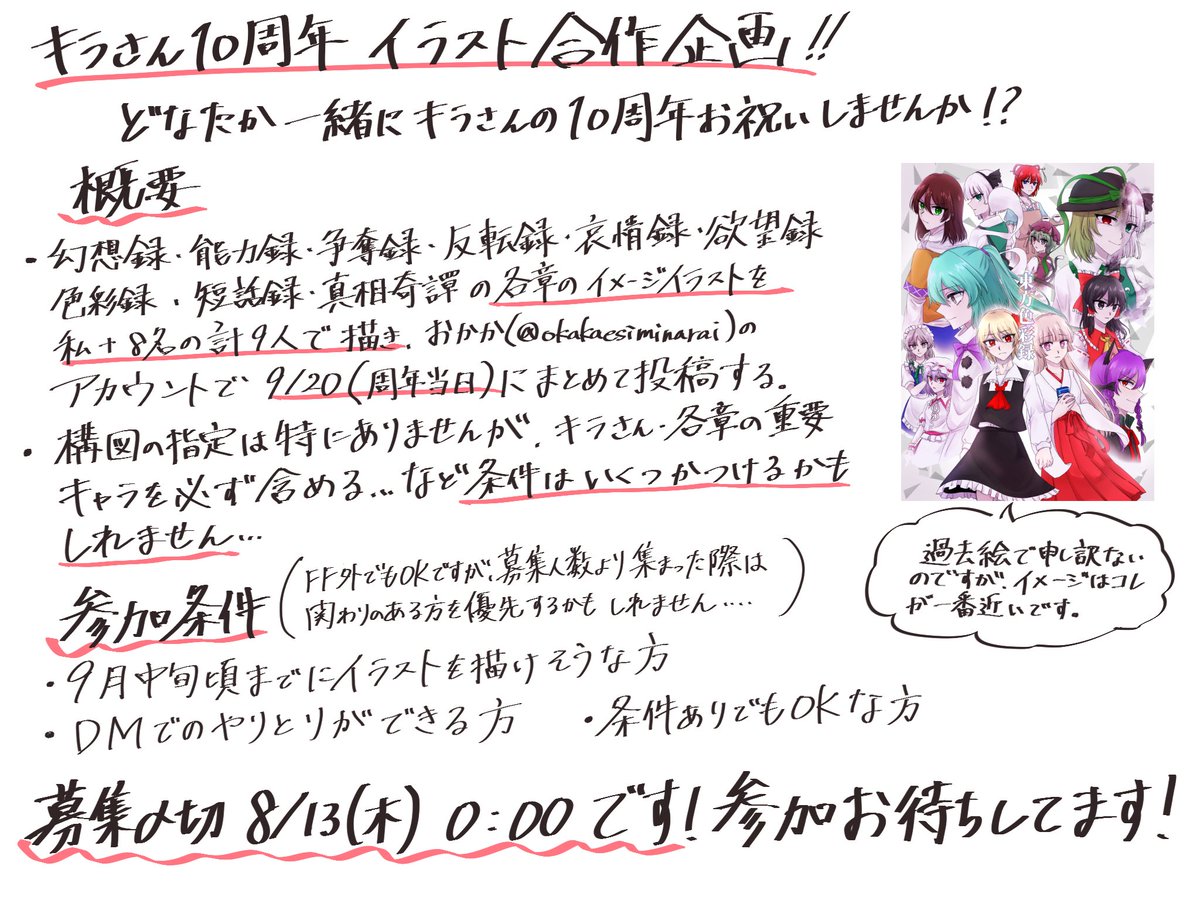 キラさん10周年 イラスト合作企画!!
どなたか一緒にキラさんの10周年お祝いしませんか!?
概要
・幻想録・能力録・争奪録・反転録・哀情録・欲望録
色彩録・短話録・真相奇譚の各章のイメージイラストを
私+8名の計9人で描き、おかか(@okakaesiminarai)の
アカウントで 9/20(周年当日)にまとめて投稿する。
・構図の指定は特にありませんが、キラさん・各章の重要
キャラを必ず含める…など条件はいくつかつけるかも
しれません…
過去絵で申し訳ない
のですが、イメージはコレ
が一番近いです。
参加条件
(FF外でもOKですが、募集人数より集まった際は
関わりのある方を優先するかもしれません‥‥)
・9月中旬頃までにイラストを描けそうな方
・DMでのやりとりができる方 ・条件ありでもOKな方
募集〆切 8/13(木) 0:00 です! 参加お待ちしてます!